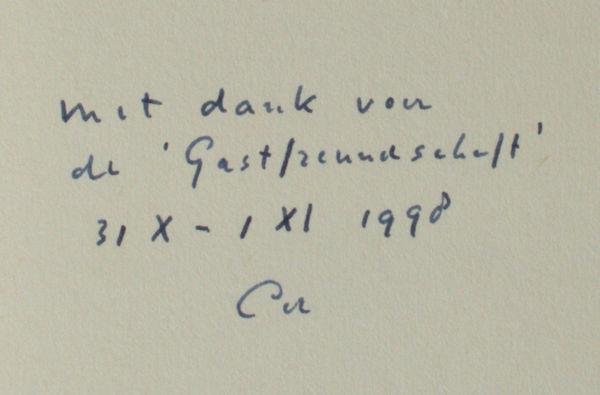 met dank voor
de 'Gastfreundschaft'
31 X - 1 XI 1998